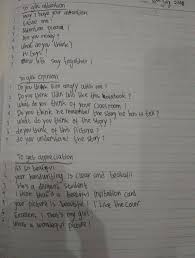 To ask attention
May I have your attention
Excuse me !
Attention please !
Are you ready ?
What do you think ?
Hi Guys !
let's say together !
To get opinion
Do you think angry with me ?
Do you think like this notebook ?
What do you think of your classroom
Do you think he remember the story he
What do you think of the story ?
do you think of this picture ?
do you understand the story ?
To get appreciation
It's so beautiful
your handwriting is clear and beautiful
He's a diligent student
I think that's a beautiful invitation card
your picture is beautiful I like the color
Excellent, that's my girl
What a wonderful picture !